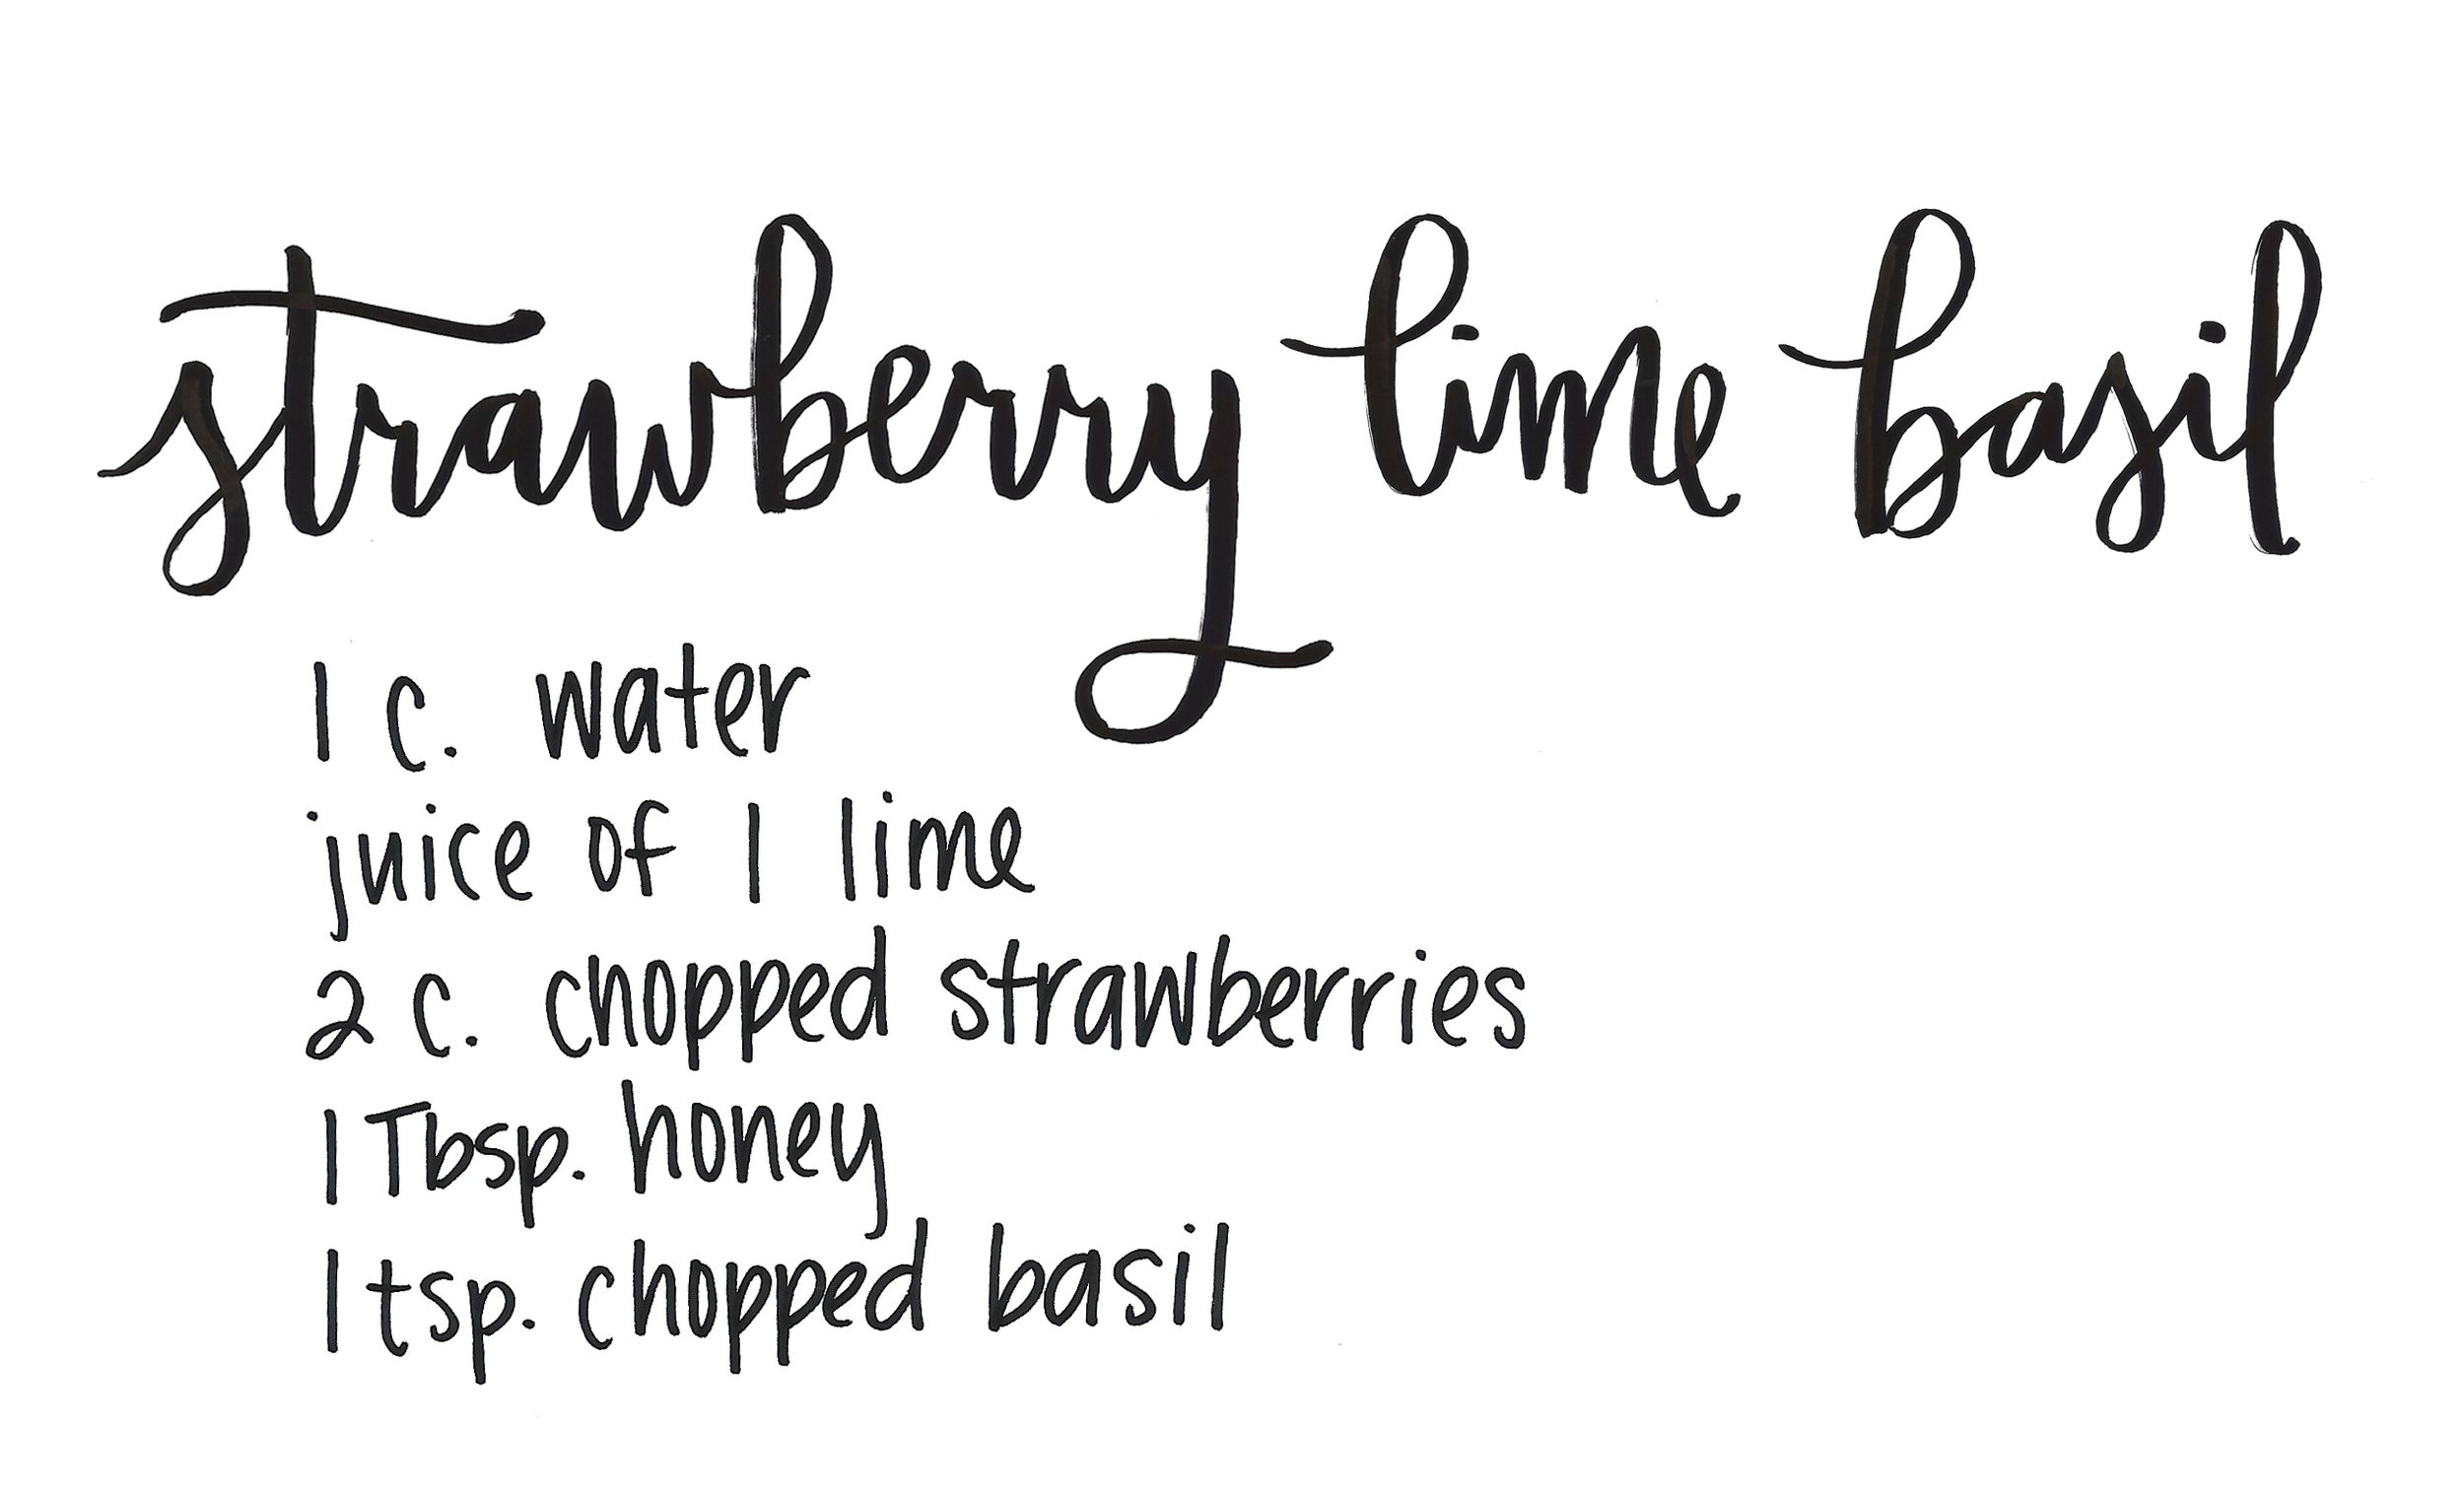 strawberry lime basil
1 c. water
juice of 1 lime
2 c. chopped strawberries
1 Tbsp. honey
1 tsp. chopped basil